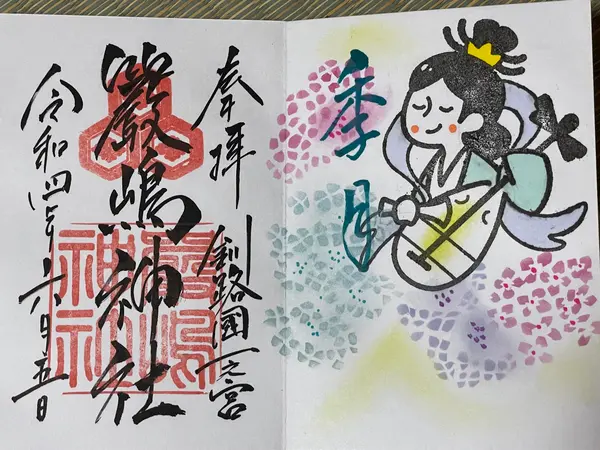 季月
奉拝
釧路國一之宮
嚴嶋神社
嚴嶋
神社
令和四年六月五日